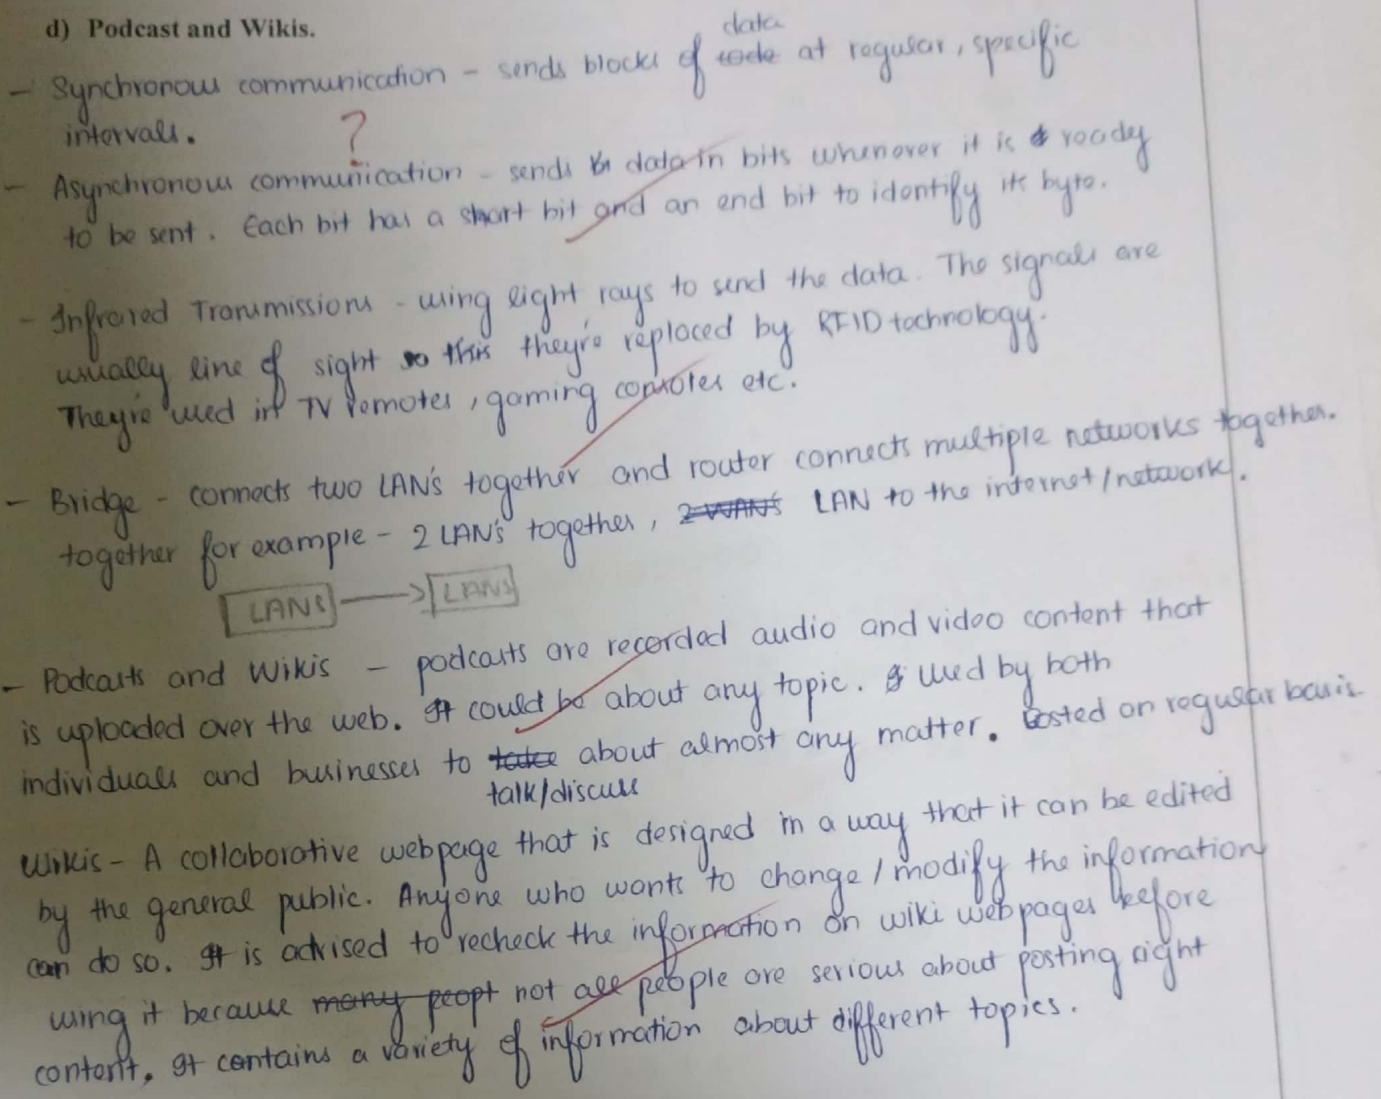 d) Podcast and Wikis.
data
- Synchronous communication - sends blocks of code at regular, specific
intervals.
?
- Asynchronous communication - sends data in bits whenever it is ready
to be sent. Each bit has a start bit and an end bit to identify its byte.
- Infrared Transmissions - using light rays to send the data. The signals are
usually line of sight so this they're replaced by RFID technology.
They're used in TV remotes, gaming consoles etc.
- Bridge - connects two LAN's together and router connects multiple networks together.
together for example - 2 LAN's together, 2 WAN's LAN to the internet/network.
LANS → LANS
- Podcasts and Wikis - podcasts are recorded audio and video content that
is uploaded over the web. It could be about any topic. used by both
individuals and businesses to take about almost any matter. Posted on regular basis
talk/discuss
Wikis - A collaborative webpage that is designed in a way that it can be edited
by the general public. Anyone who wants to change/modify the information
can do so. It is advised to recheck the information on wiki webpages before
using it because many peopl not all people are serious about posting right
content. It contains a variety of information about different topics.